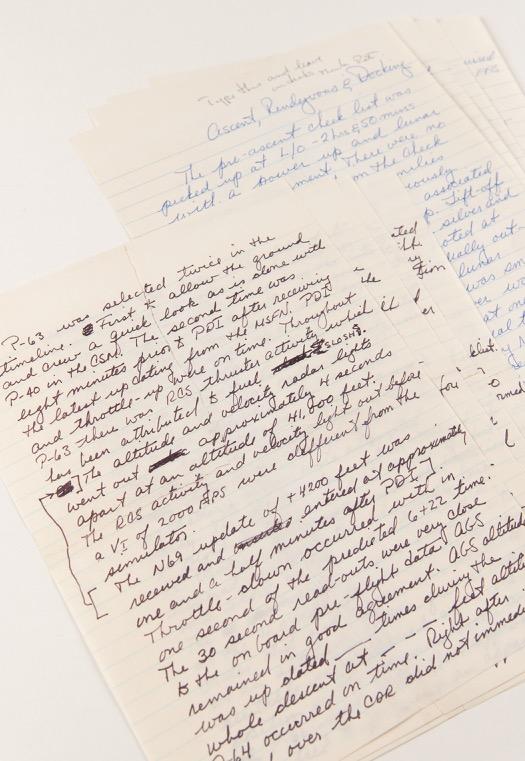 Type this and leave
Ascent, Rendezvous & Docking
The pre-ascent check list was
picked up at L/O - 2hrs & 50 mins
with a power up and lunar
ment. There were no
on the check
miles
ously
associated
p. Lift-off
silver and
oted at
ually out-
lunar
was sm
P-63 was selected twice in the
timeline. First to allow the ground
and crew a quick look as is done with
P-40 in the CSM. The second time was
eight minutes prior to PDI after receiving
the latest updating from the MSFN. PDI
and throttle-up were on time. Throughout the
P-63 there was RCS thruster activity which
has been attributed to fuel SLOSHG.
The altitude and velocity radar lights
went out approximately 4 seconds
apart at an altitude of 41,000 feet.
The RCS activity and velocity light out before
a VI of 2000 FPS were different from the
simulator.
The N69 update of +4200 feet was
received and entered at approximately
one and a half minutes after PDI
Throttle-down occurred with in
one second of the predicted 6+22 time.
The 30 second read-outs were very close
to the on board pre-flight data. AGS
remained in good agreement. AGS altitude
was up dated ___ times during the
whole descent at - - - feet altitude
P-64 occurred on time. Right after
over the COR did not immed